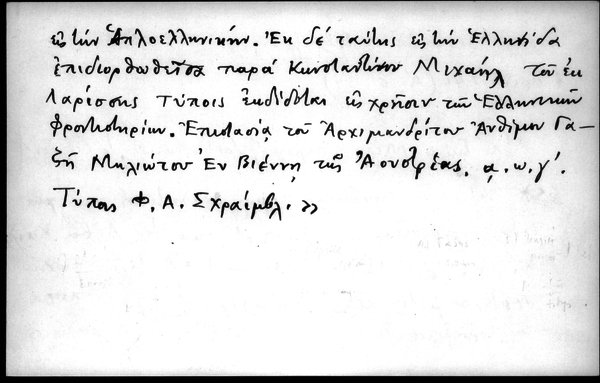 εἰς τὴν Ἁπλοελληνικήν. Ἐκ δὲ ταύτης εἰς τὴν Ἑλληνίδα
ἐπιδιορθωθεῖσα παρὰ Κωνσταντίνου Μιχαὴλ τοῦ ἐκ
Λαρίσσης τύποις ἐκδίδοται εἰς χρῆσιν τῶν Ἑλληνικῶν
Φροντιστηρίων. Ἐπιστασίᾳ τοῦ Ἀρχιμανδρίτου Ἀνθίμου Γα–
ζῆ Μηλιώτου Ἐν Βιέννῃ τῆς Ἀουστρίας. α. ω. γʹ.
Τύποις Φ. Α. Σχραίμβλ. »